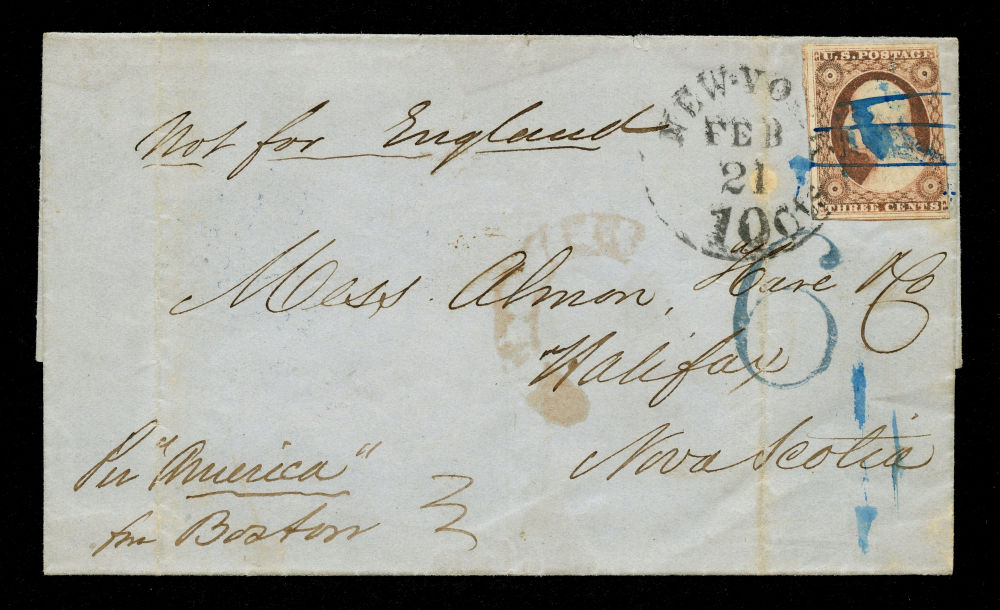 U.S. POSTAGE
THREE CENTS
NEW-YO
FEB
21
10 cts
Not for England
Mess. Almon, Hare & Co
Halifax
Nova Scotia
6
Per "America"
fm Boston